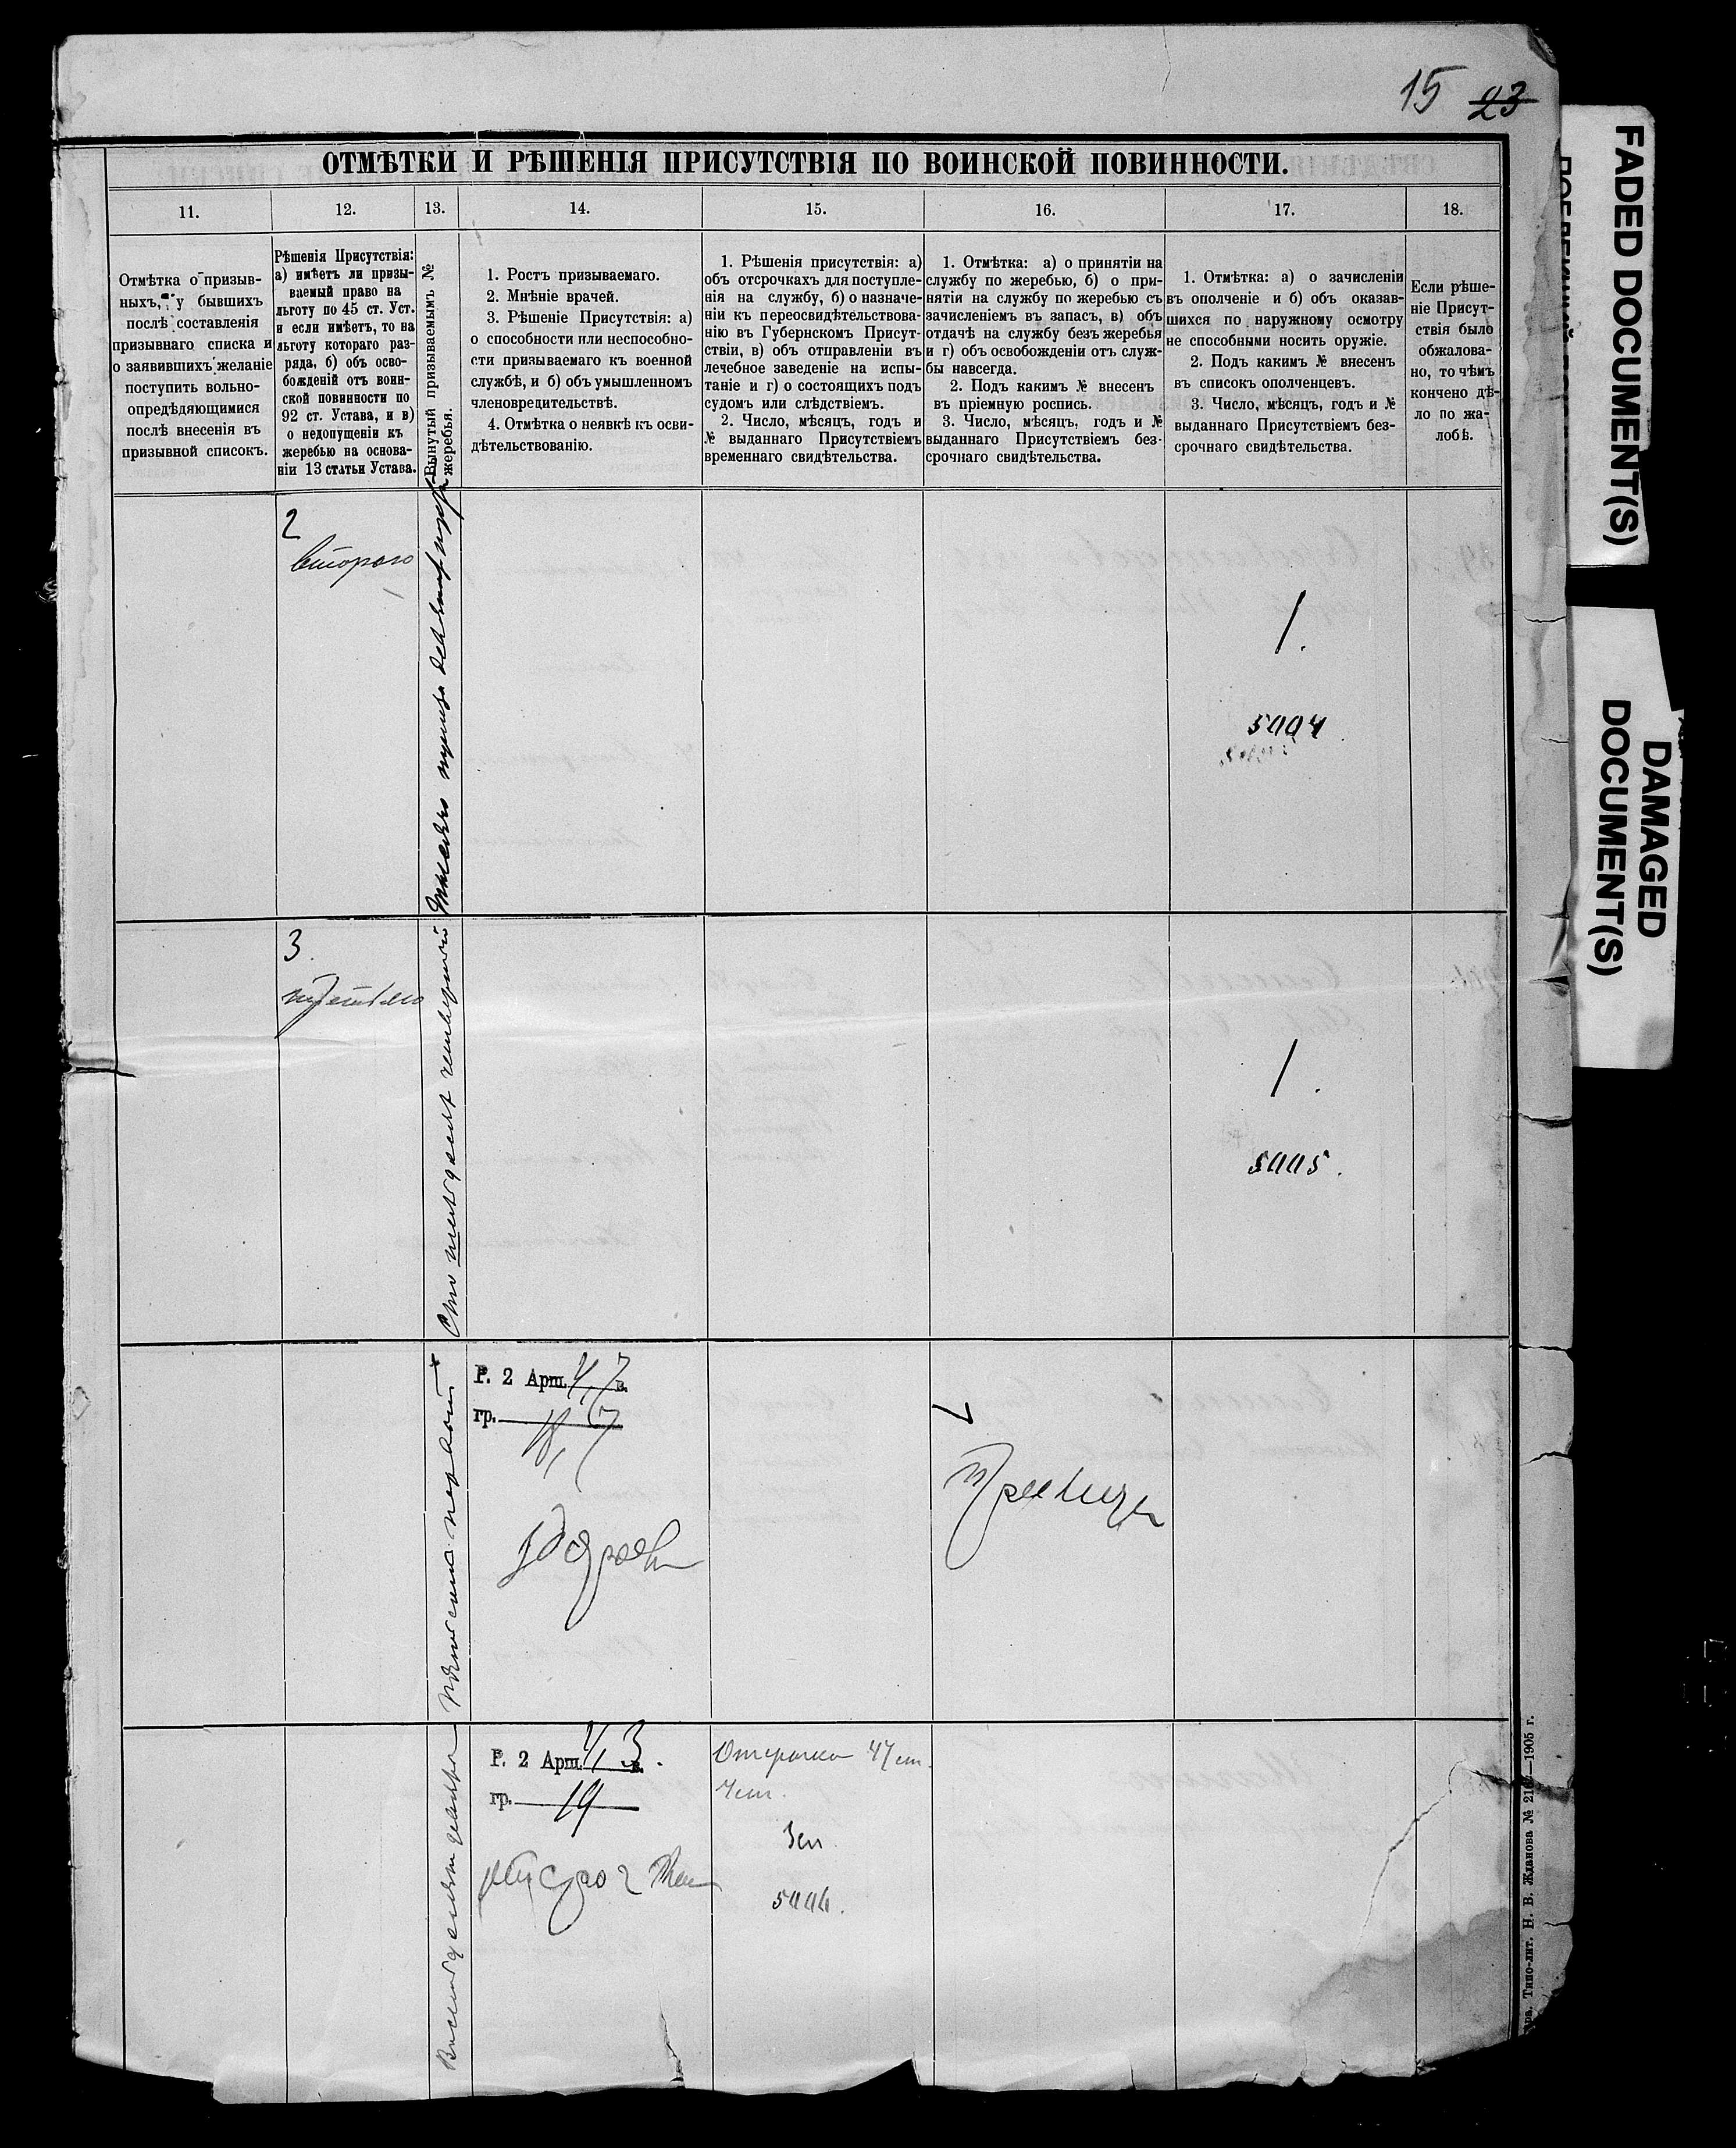 15 23
ОТМѢТКИ И РѢШЕНІЯ ПРИСУТСТВІЯ ПО ВОИНСКОЙ ПОВИННОСТИ.
11.
12.
13.
14.
15.
16.
17.
18.
Отмѣтка о призыв-
ныхъ, у бывшихъ
послѣ составленія
призывнаго списка и
о заявившихъ желаніе
поступить вольно-
опредѣдяющимися
послѣ внесенія въ
призывной списокъ.
Рѣшенія Присутствія:
а) имѣетъ ли призы-
ваемый право на
льготу по 45 ст. Уст.
и если имѣетъ, то на
льготу котораго раз-
ряда, б) объ осво-
божденій отъ воин-
ской повинности по
92 ст. Устава, и в)
о недопущеніи къ
жеребью на основа-
ніи 13 статьи Устава.
Вынутый призываемымъ №
жеребья.
1. Ростъ призываемаго.
2. Мнѣніе врачей.
3. Рѣшеніе Присутствія: а)
о способности или неспособно-
сти призываемаго къ военной
службѣ, и б) объ умышленномъ
членовредительствѣ.
4. Отмѣтка о неявкѣ къ осви-
дѣтельствованію.
1. Рѣшенія присутствія: а)
объ отсрочкахъ для поступле-
нія на службу, б) о назначе-
ніи къ переосвидѣтельствова-
нію въ Губернскомъ Присут-
ствіи, в) объ отправленіи въ
лечебное заведеніе на испы-
таніе и г) о состоящихъ подъ
судомъ или слѣдствіемъ.
2. Число, мѣсяцъ, годъ и
№ выданнаго Присутствіемъ
временнаго свидѣтельства.
1. Отмѣтка: а) о принятіи на
службу по жеребью, б) о при-
нятіи на службу по жеребью съ
зачисленіемъ въ запасъ, в) объ
отдачѣ на службу безъ жеребья
и г) объ освобожденіи отъ служ-
бы навсегда.
2. Подъ какимъ № внесенъ
въ пріемную роспись.
3. Число, мѣсяцъ, годъ и №
выданнаго Присутствіемъ без-
срочнаго свидѣтельства.
1. Отмѣтка: а) о зачисленіи
въ ополченіе и б) объ оказав-
шихся по наружному осмотру
не способными носить оружіе.
2. Подъ какимъ № внесенъ
въ списокъ ополченцевъ.
3. Число, мѣсяцъ, годъ и №
выданнаго Присутствіемъ без-
срочнаго свидѣтельства.
Если рѣше-
ніе Присут-
ствія было
обжалова-
но, то чѣмъ
кончено дѣ-
ло по жа-
лобѣ.
2
второго
1.
3.
третьяго
Сто шестьдесят четвертый
1.
Р. 2 Арш. 4,7 в.
гр. 18,7
Здоров
7
Пятьсот первый
Р. 2 Арш. 4,3 в.
гр. 19
Отсрочка 47 ст.
Типо-лит. Н. В. Жданова № 1905 г.
FADED DOCUMENT(S)
DAMAGED
DOCUMENT(S)